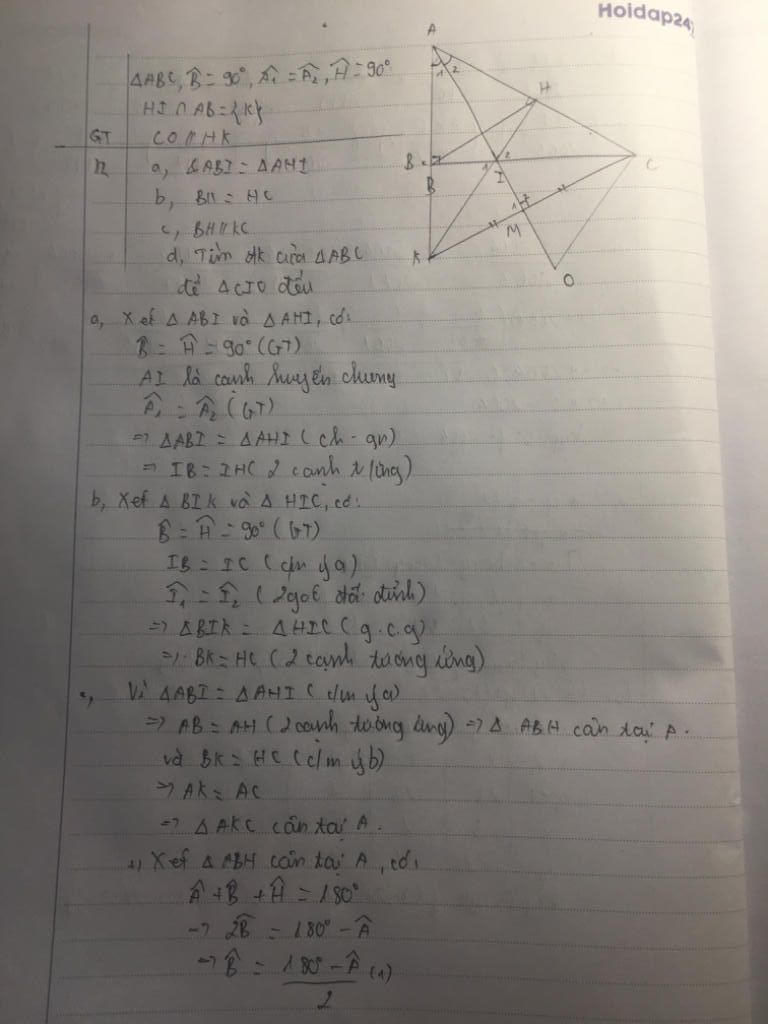 Hoidap247
ΔABC, B̂ = 90°, Â₁ = Â₂, Ĥ = 90°
HI ∩ AB = {K}
GT CO // HK
a, ΔABI = ΔAHI
b, BK = HC
c, BH // KC
d, Tìm đk của ΔABC
để ΔCIO đều
A
1 2
H
B
B
1 2
I
C
1 2
M
K
O
a, Xét ΔABI và ΔAHI, có:
B̂ = Ĥ = 90° (GT)
AI là cạnh huyền chung
Â₁ = Â₂ (GT)
=> ΔABI = ΔAHI (ch - gn)
=> IB = IH( 2 cạnh t/ứng)
b, Xét Δ BIK và Δ HIC, có:
B̂ = Ĥ = 90° (GT)
IB = IC (c/m ý a)
Î₁ = Î₂ (2 góc đối đỉnh)
=> ΔBIK = ΔHIC (g.c.g)
=> BK = HC (2 cạnh tương ứng)
c, Vì ΔABI = ΔAHI (c/m ý a)
=> AB = AH (2 cạnh tương ứng) => Δ ABH cân tại A.
và BK = HC (c/m ý b)
=> AK = AC
=> Δ AKC cân tại A.
+) Xét Δ ABH cân tại A, có:
Â + B̂ + Ĥ = 180°
=> 2B̂ = 180° - Â
=> B̂ = (180° - Â)/2 (1)